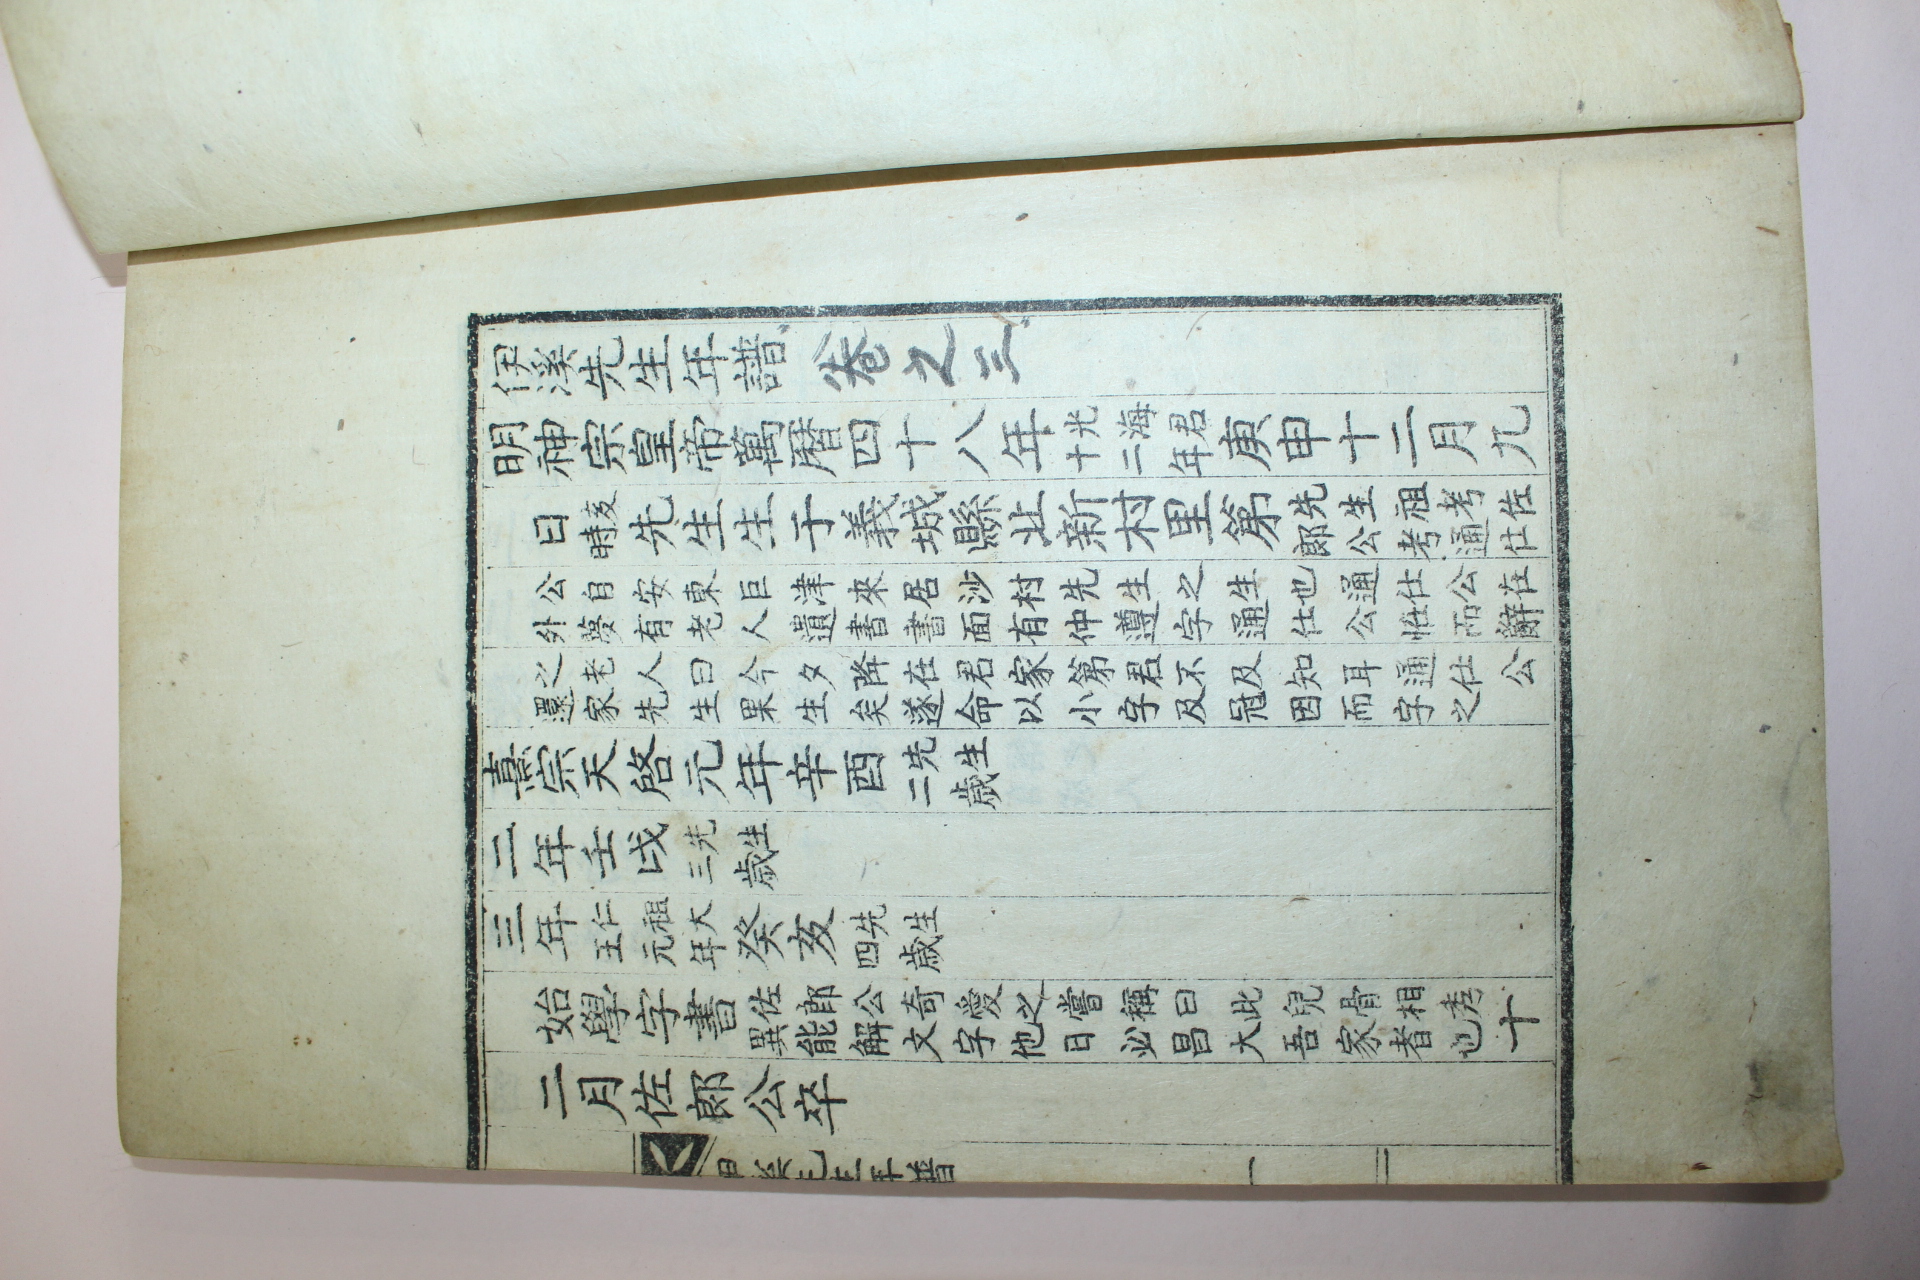 伊溪先生年譜 卷之三
明神宗皇帝萬曆四十八年光海君十二年庚申十二月九
日亥時先生生于義城縣北新村里第先生祖考佐郎公考通仕
公自安東巨津來居沙村先生之生也通仕公在
外夢有老人遺書書面有仲遵字通仕公恠而辭
之老人曰今夕降在君家第君不及知耳通仕公
還家先生果生矣遂命以小字及冠因而字之
熹宗天啓元年辛酉先生二歲
二年壬戌先生三歲
三年仁祖大王元年癸亥先生四歲
始學字書佐郎公奇愛之嘗稱曰此兒骨相秀異能解文字他日必昌大吾家者也十
二月佐郎公卒